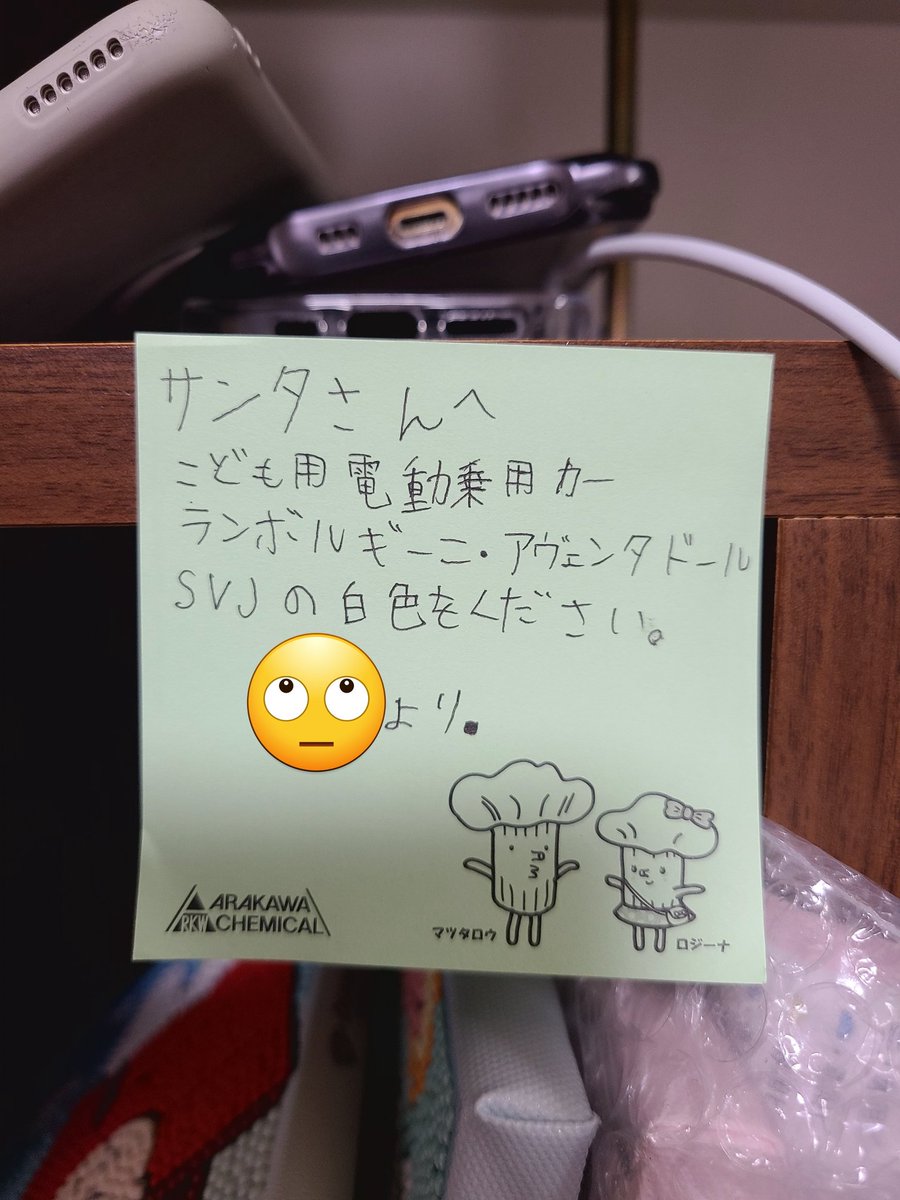 サンタさんへ
こども用電動乗用カー
ランボルギーニ・アヴェンタドール
SVJの白色をください。
より.
ARAKAWA
CHEMICAL
マツタロウ
ロジーナ